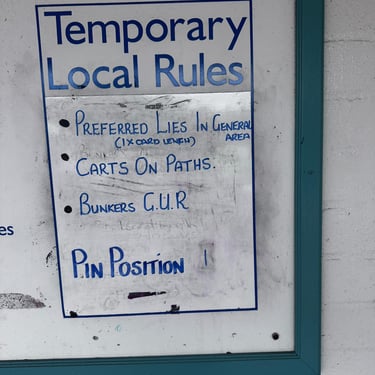 Temporary
Local Rules
• PREFERRED LIES IN GENERAL
(1 X CARD LENGTH) AREA
• CARTS ON PATHS.
• BUNKERS G.U.R
es
PIN POSITION 1